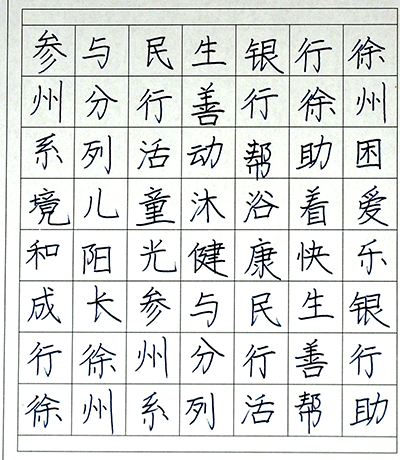 参与民生银行徐
州分行善行徐州
系列活动帮助困
境儿童沐浴着爱
和阳光健康快乐
成长参与民生银
行徐州分行善行
徐州系列活帮助